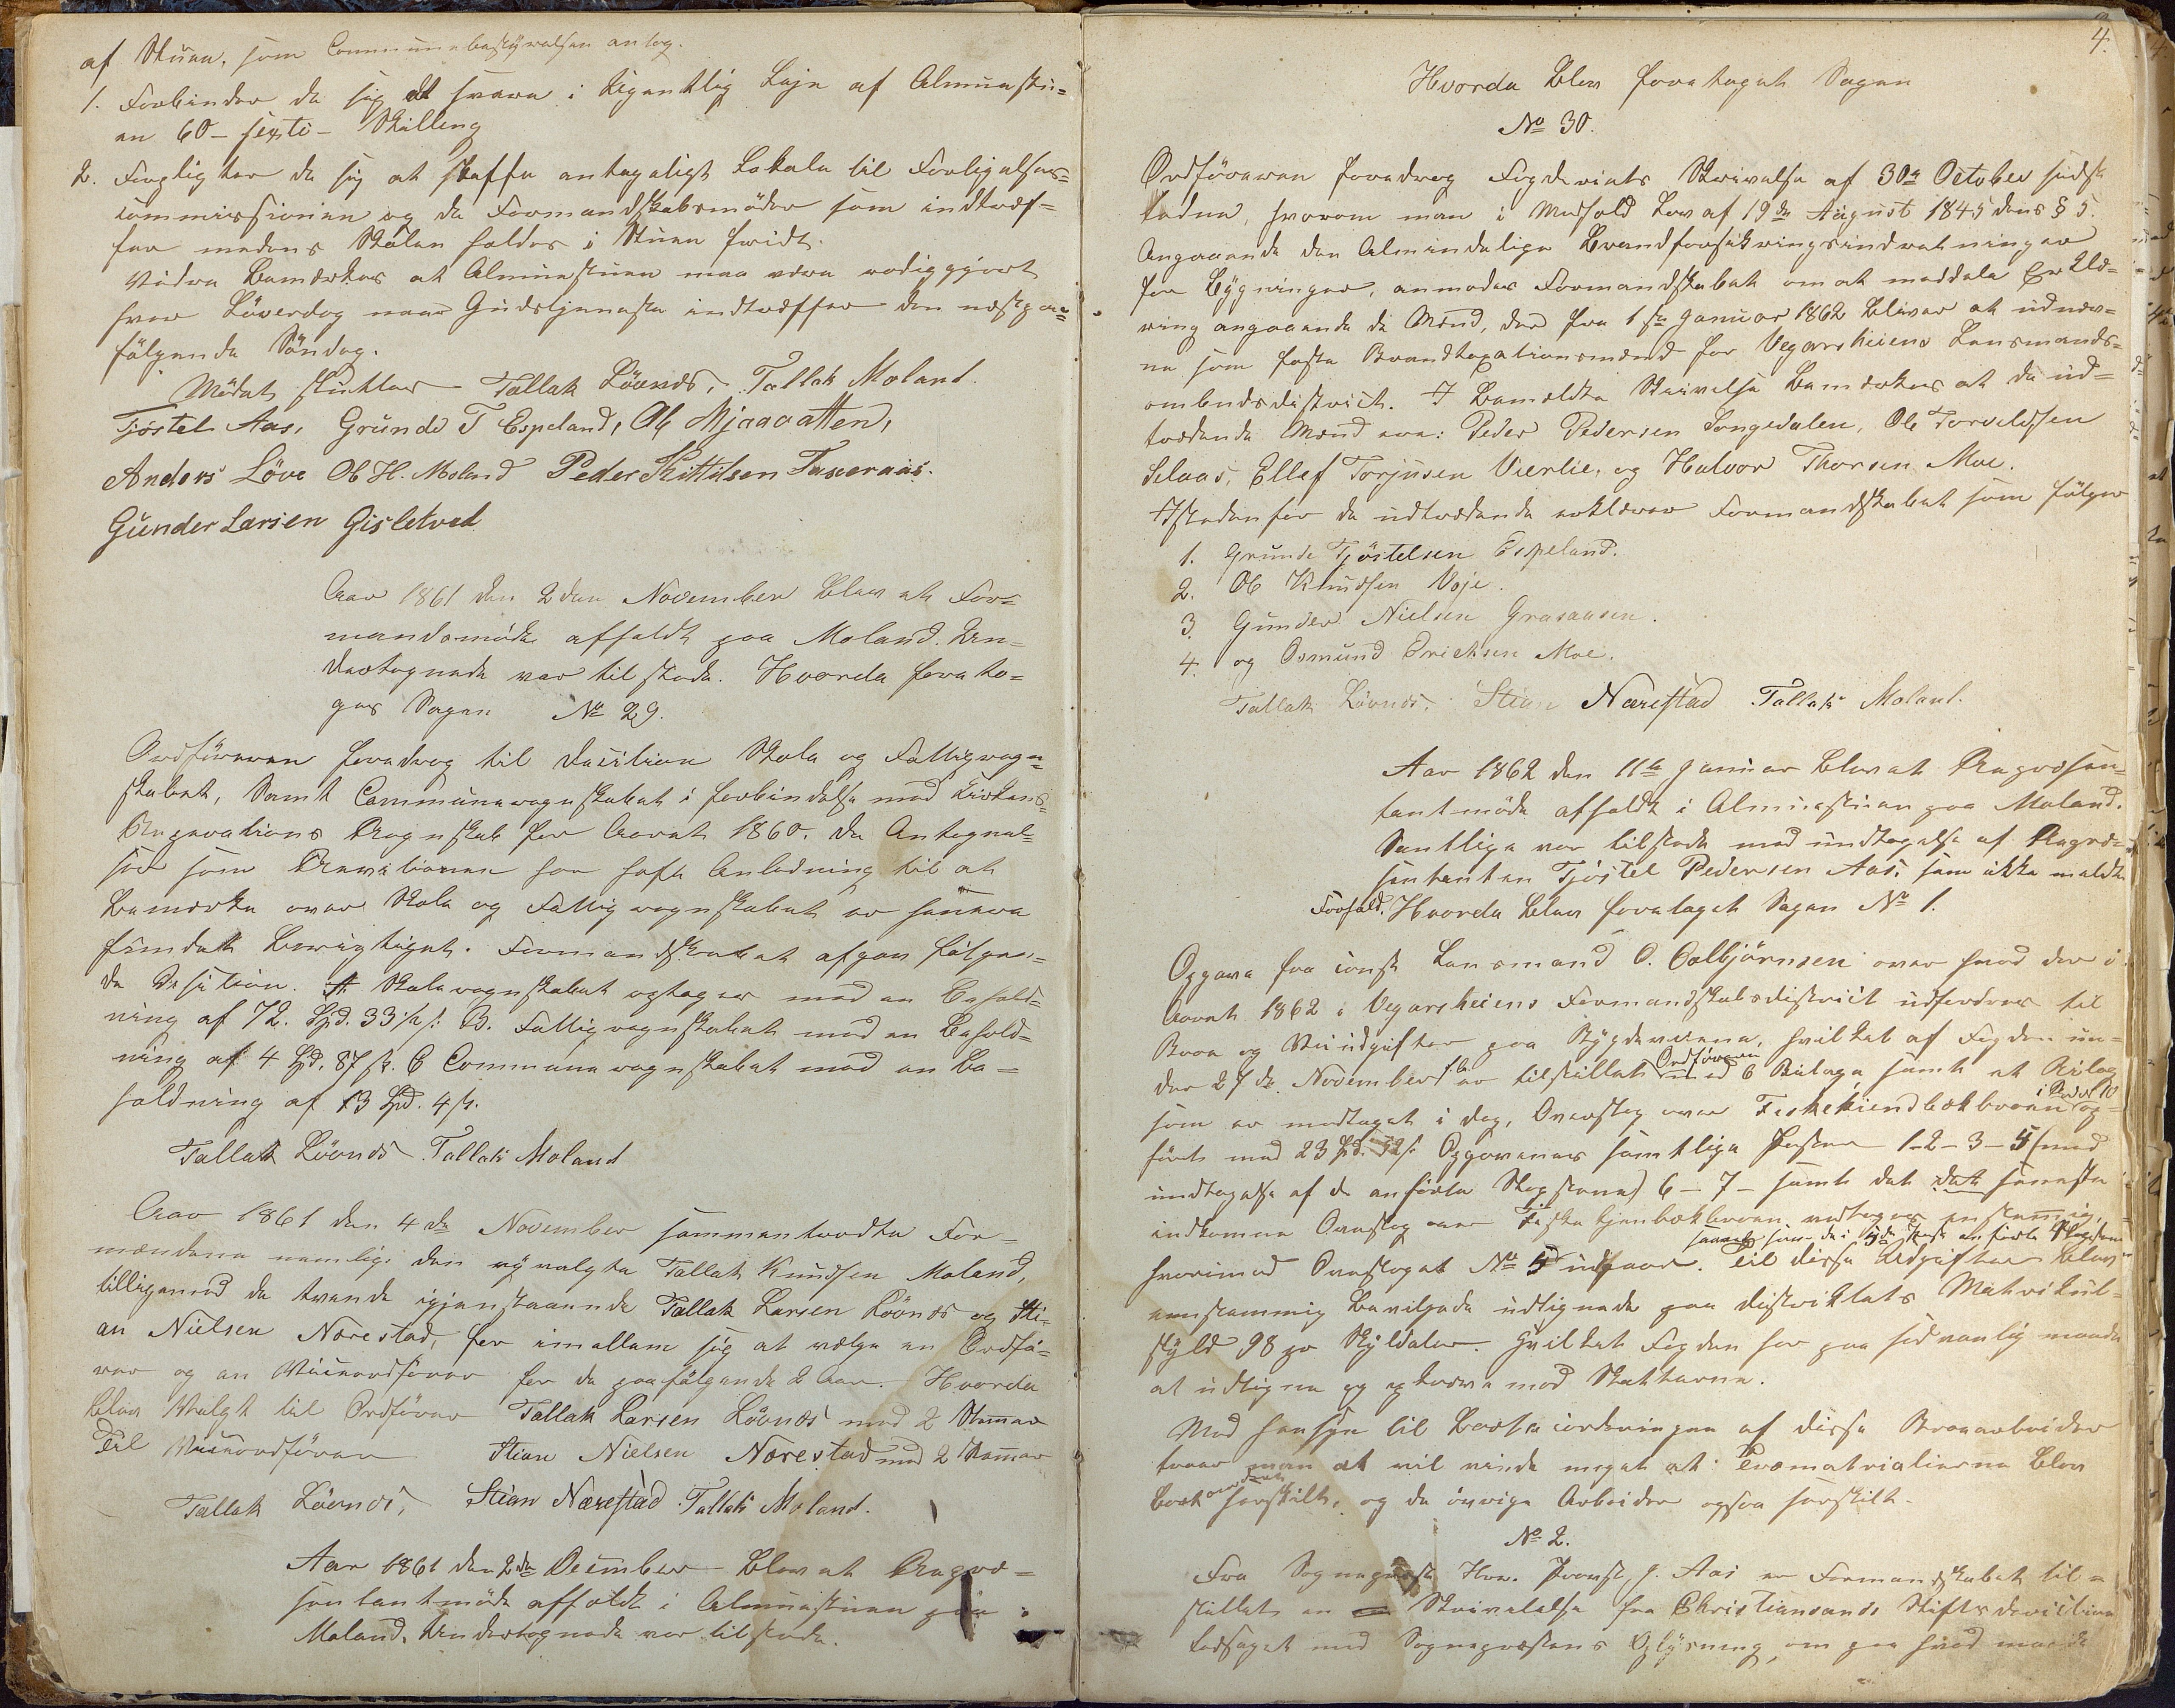 af Stuen, som Communebestyrelsen antog.
1. Forbinder de sig at svare i Ugentlig Leje af Almuestu-
en 60 - sexti - Skilling
2. Forpligter de sig at skaffe antageligt Lokale til Forligelses-
commissionen og de Formandskabsmöder som indtræf-
fer medens Skolen holdes i Stuen hvidt.
Videre bemærkes at Almuestuen maa være rediggjort
hver Löverdag naar Gudstjeneste indtræffer den næstpaa-
fölgende Söndag.
Mödet sluttes Tallak Lövnds, Tallak Moland.
Tjöstel Aas, Grunde T Espeland, Ole Mjaavatten,
Anders Löve Ole H. Moland Peder Kittilsen
Gunder Larsen Gisletved
Aar 1861 den 2den November blev et For-
mandsmöde afholdt paa Moland. Un-
dertegnede var tilstede. Hvorda foreto-
ges Sagen No 29.
Ordföreren foredrog til decition Skole og Fattigregn-
skabet, Samt Communeregnskabet i forbindelse med Kirkens
Reparations Regnskab for Aaret 1860. De Antegnel-
ser som Revisionen har haft Anledning til at
bemærke over Skole og Fattigregnskabet er senere
fundet berigtiget. Formandskabet afgav fölgen-
de Desition. A. Skoleregnskabet vedtages med en Behold-
ning af 72. Spd. 33 ½ s: B. Fattigregnskabet med en Behold-
ning af 4 Spd. 87 s. C Communeregnskabet med en Be-
holdning af 13 Spd. 4 s.
Tallak Lövnds Tallak Moland
Aar 1861 den 4de November sammentraadte For-
mændene nemlig: den nyvalgte Tallak Knudsen Moland,
tilligemed de tvende igjenstaaende Tallak Larsen Lövnds og Sti-
an Nielsen Nærestad, for imellem sig at vælge en Ordfö-
rer og en Viceordförer for de paafölgende 2 Aar. Hvorda
blev Valgt til Ordförer Tallak Larsen Lövnds med 2 Stemmer
Til Viceordförer Stian Nielsen Nærestad med 2 Stemmer
Tallak Lövnds, Stian Nærestad Tallak Moland.
Aar 1861 den 2de December blev et Repræ-
sentantmöde afholdt i Almuestuen paa
Moland. Undertegnede var tilstede.
4.
Hvorda blev foretaget Sagen
No 30.
Ordföreren foredrog Fogderiets Skrivelse af 30te October sidst-
leden, hvorom man i Medhold Lov af 19de August 1845 dens § 5.
Angaaende den Almindelige Brandforsikringsindretninger
for Bygninger, anmoder Formandskabet om at meddele Erklæ-
ring angaaende de Mænd, der fra 1ste Januar 1862 bliver at udnæv-
ne som faste Brandtaxationsmænd for Vegarsheiens Lensmands-
ombudsdistrict. I bemeldte Skrivelse bemærkes at de ud-
trædende Mænd ere: Peder Pedersen Songedalen, Ole Torvildsen
Selaas, Ellef Torjusen Vierlie, og Halvor Thorsen Moe.
Istedenfor de udtrædende erklærer Formandskabet som fölger
1. Grunde Tjöstelsen Espeland.
2. Ole Knudsen Voje.
3. Gunder Nielsen Grasaasen.
4. og Osmund Erichsen Moe.
Tallak Lövnds, Stian Nærestad Tallak Moland.
Aar 1862 den 11te Januar blev et Repræsen-
tantmöde afholdt i Almuestuen paa Moland.
Samtlige var tilstede med undtagelse af Repræ-
sentanten Tjöstel Pedersen Aas, som ikke meldte
Forfald. Hvorda blev foretaget Sagen No 1.
Opgave fra const Lensmand O. Oolbjörnsen over hvad der i
Aaret 1862 i Vegarsheiens Formandskabsdistrict udfordres til
Broe og Veiudgifter paa Bygdeveiene, hvilket af Fogden un-
der 27de November f.A. er tilstillet Ordföreren med 6 Bilage samt et Bilag
som er modtaget i dag, Overslag over Fiskekiendbækbroen i Rode 10 og-
fört med 23 Spd. 32 s. Opgavernes samtlige Poster 1-2-3-5 (med
undtagelse af de anförte Stopstene) 6 - 7 - samt det det seneste
indkomne Overslag over Fiskekjenbækbroen, vedtages enstemmig,
hvorimod Overslaget No 5 udgaar. saavelsom de i 5te Post anförte Stopstene Til disse Udgifter blev
eenstemmig bevilgede udlignede paa districtets Matrikul-
skyld 98 pr Skylddaler. Hvilket Fogden har paa sedvanlig maade
at udligne og opkræve med Skatterne.
Med hensyn til Bortacorderingen af disse Broarbeider
troer man at vil vinde meget at Træmaterialierne blev
bortacorderet serskilt, og de övrige Arbeider ogsaa serskilt.
No 2.
Fra Sognepræst Hr. Provst J. Aas er Formandskabet til-
stillet en Skrivelse fra Christiansands Stiftsdirection
ledsaget med Sognepræstens Oplysning, om paa hvad maade